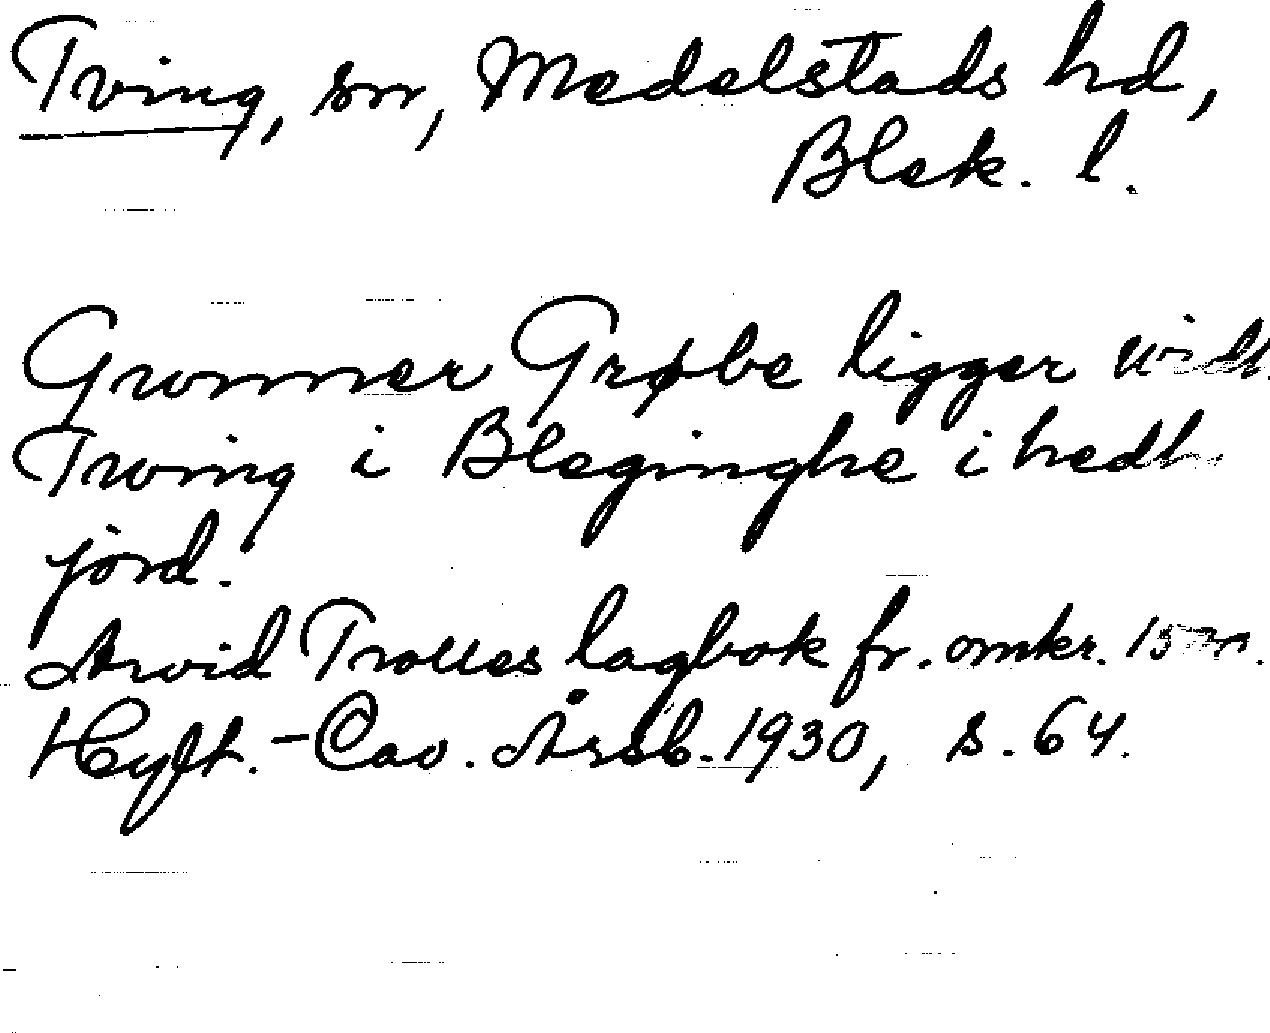 Tving, sn, Medelstads hd,
Blek. l.
Gwnner Grøbe ligger widh
Twing i Bleginghe i hedh
jord.
Arvid Trolles lagbok fr. omkr.
Hylt.-Cav. Årsb. 1930, s. 64.